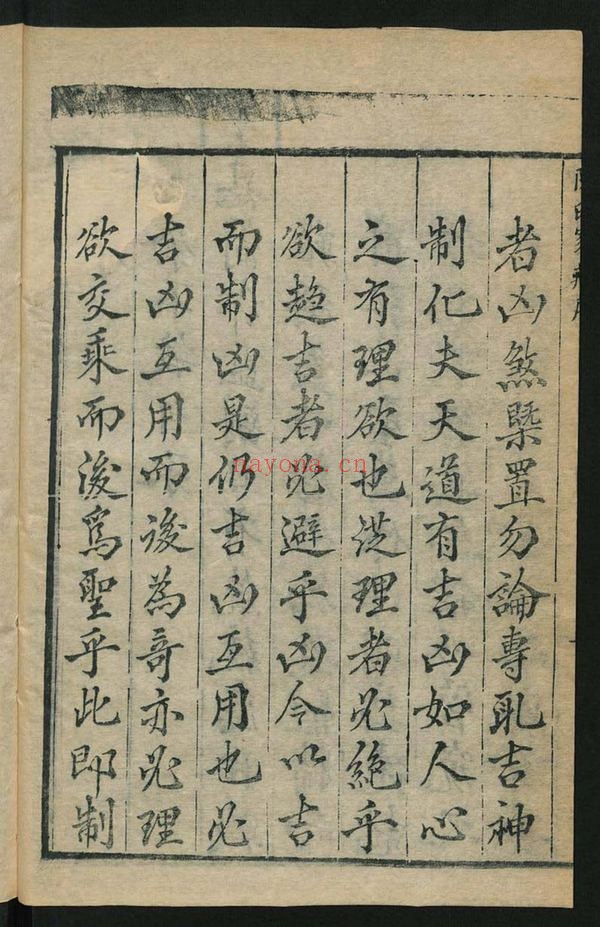 者凶煞槩置勿論專取吉神
制化夫天道有吉凶如人心
之有理欲也從理者必絕乎
欲趨吉者必避乎凶今以吉
而制凶是仍吉凶互用也必
吉凶互用而後為奇亦必理
欲交乘而後爲聖乎此即制
nayona.cn